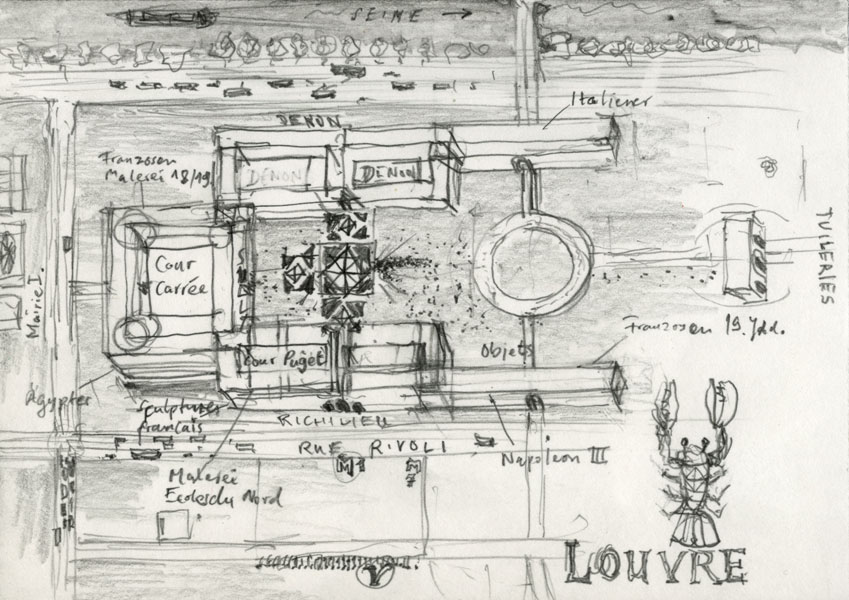 SEINE
Italiener
DENON
Franzosen
Malerei 18/19
DENON
DENON
Cour
Carrée
SULLY
TUILERIES
Mairie I.
Cour Puget
Objets
Franzosen 19. Jhd.
Ägypter
Sculptures
français
RICHILIEU
RUE RIVOLI
M1
M
7
Napoleon III
Malerei
Ecoles du Nord
LOUVRE